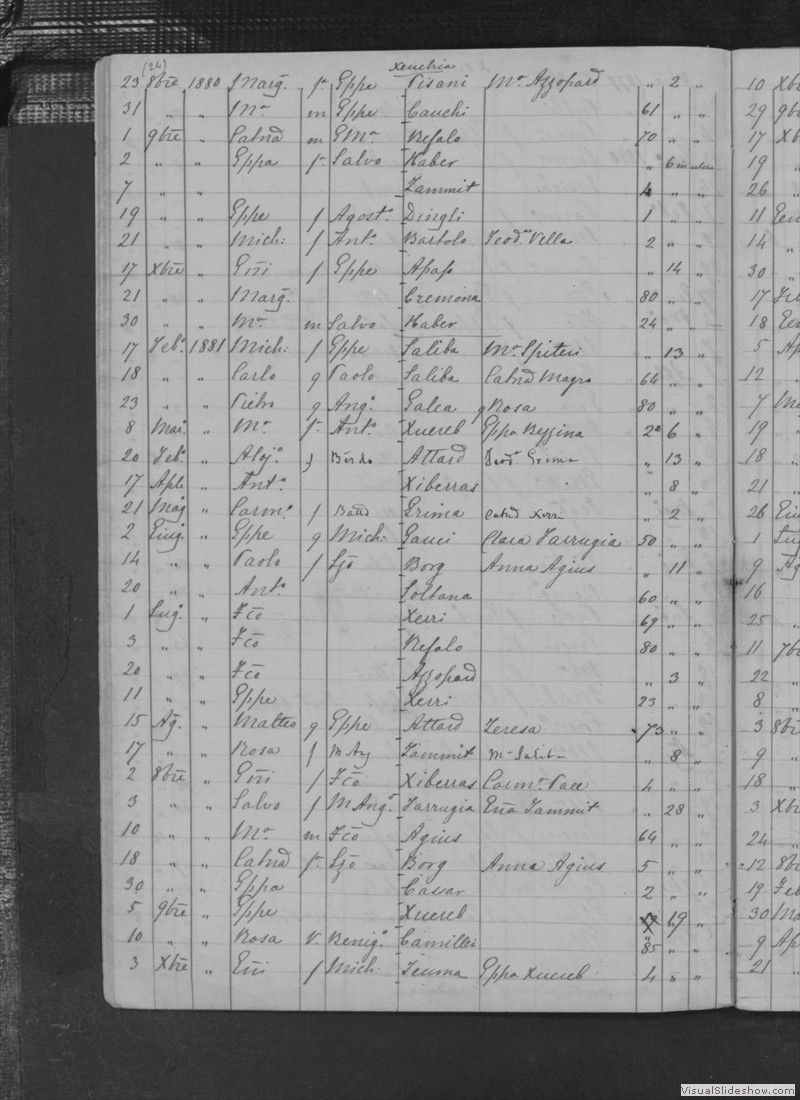 (24) Xeuchia
23 8bre 1880 Marg. f. Eppe Pisani Mª Azzopard " 2 "
31 " " Mª m Eppe Cauchi 61 " "
1 9bre " Catnd m GMª Refalo 70 " "
2 " " Eppa f. Salvo Haber " 6 "
7 " " Zammit 4 " "
19 " " Eppe f Agostº Dingli 1 " "
21 " " Mich: f Antº Bartolo Teodª Vella 2 " "
17 Xbre " Giñi f Eppe Apap " 14 "
21 " " Marg. Cremona 80 " "
30 " " Mª m Salvo Haber 24 " "
17 Febº 1881 Mich: f Eppe Saliba Mª Spiteri " 13 "
18 " " Carlo g Paolo Saliba Catnd Magro 64 " "
23 " " Pietro g Angº Galea g Rosa 80 " "
8 Mar. " Mª f. Antº Xuereb Eppa Bezzina 2 6 "
20 Febº " Alojº f Bërdo Attard Teodª Grima " 13 "
17 Aple " Antº Xiberras " 8 "
21 Mag " Carmº f Batta Grima Catnd Xerri " 2 "
2 Giug. " Eppe g Mich: Gauci Clara Farrugia 50 " "
14 " " Paolo f Ljo Borg Anna Agius " 11 "
20 " " Antº Soltana 60 " "
1 Lugº " Fco Xerri 69 " "
3 " " Fco Refalo 80 " "
20 " " Fco Azzopard " 3 "
11 " " Eppe Xerri 23 " "
15 Ag. " Matteo g Eppe Attard Teresa 73 " "
17 " " Rosa f M Ang Zammit Mª Saliba " 8 "
2 8bre " Giñi f Fco Xiberras Carmª Pace 4 " "
3 " " Salvo f M Angº Farrugia Zammit " 28 "
10 " " Mª m Fco Agius 64 " "
18 " " Catnd f. Ljo Borg Anna Agius 5 " "
30 " " Eppa Cassar 2 " "
5 9bre " Eppe Xuereb " 19 "
10 " " Rosa V. Benigº Camilleri 85 " "
3 Xbre " Giñi f Mich: Teuma Eppa Xuereb 4 " "
10 Xbr
29 9br
17 Xb
19 "
26 "
11 Gen
14 "
30 "
17 Feb
18 Ge
5 Ap
12 "
7 Ma
19 "
18 "
21 "
26 Giu
1 Lug
9 Ag
16
25 "
11 7br
22 "
8 "
3 8br
9 "
18 "
3 Xb
24 "
12 8br
19 Feb
30 Ma
9 Ap
21 "
VisualSlideshow.com